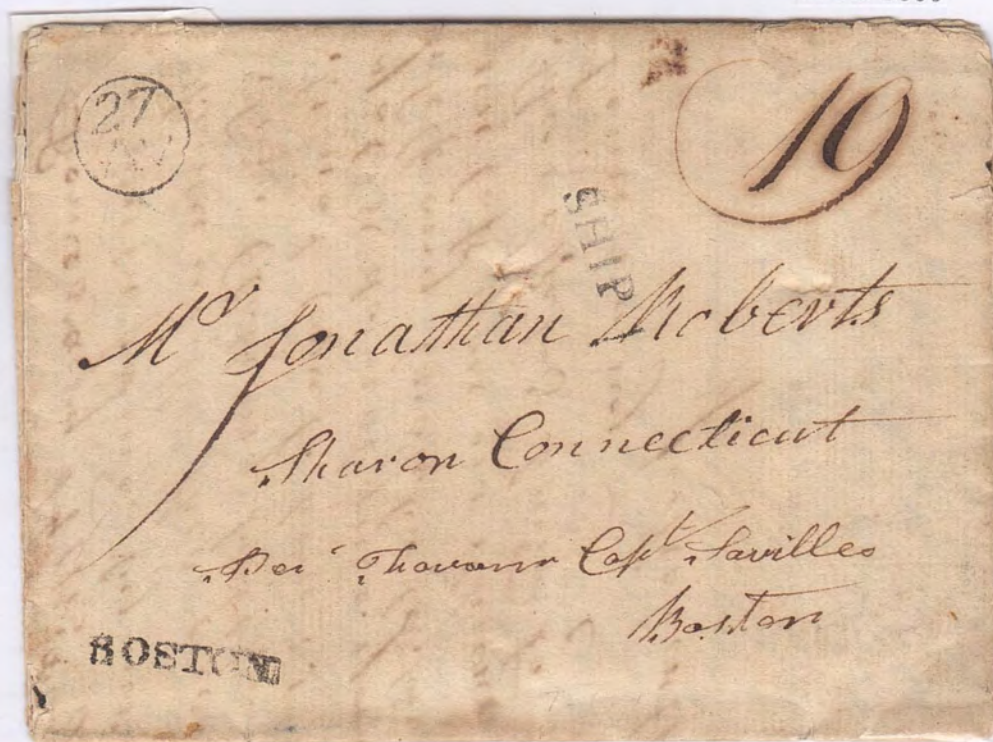 27
19
SHIP
Mr Jonathan Roberts
Sharon Connecticut
Capt Savilles
Boston
BOSTON